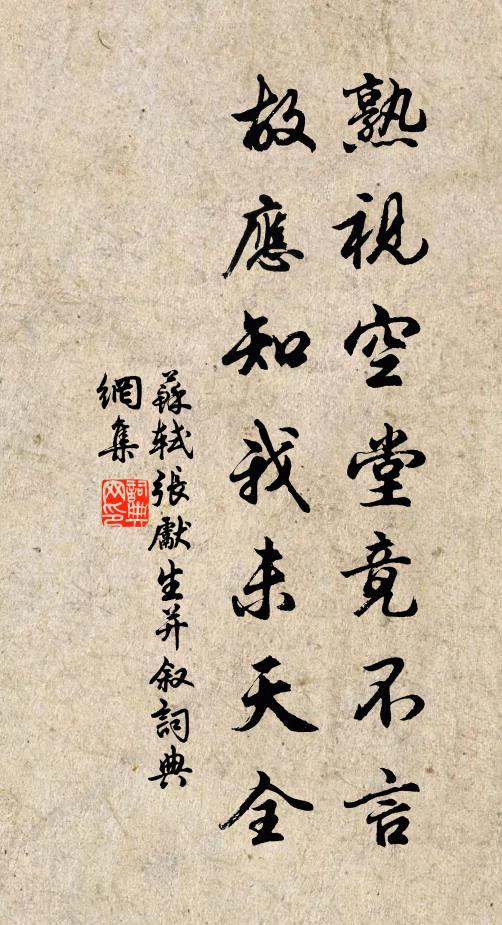 熟視空堂竟不言
故應知我未天全
蘇軾張獻生并叙詞典
網集
詞典网印